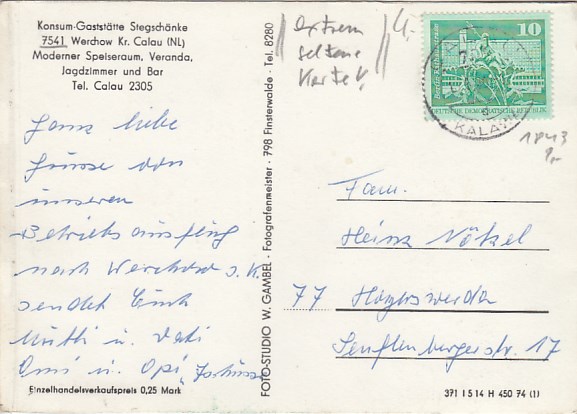 Konsum-Gaststätte Stegschänke
7541 Werchow Kr. Calau (NL)
Moderner Speiseraum, Veranda,
Jagdzimmer und Bar
Tel. Calau 2305
Ganz liebe
Grüsse von
unserem
Betriebsausflug
nach Werchow s. K.
sendet Euch
Mutti u. Vati
Omi u. Opi
Einzelhandelsverkaufspreis 0,25 Mark
FOTO-STUDIO W. GAMBEL · Fotografenmeister · 798 Finsterwalde · Tel. 8280
extrem
seltene
Karte!
4,-
10
DEUTSCHE DEMOKRATISCHE REPUBLIK
KALAU
1843
9,-
Fam.
Heinz Nökel
77 Hoyerswerda
Senftenbergerstr. 17
371 I 5 14 H 450 74 (1)